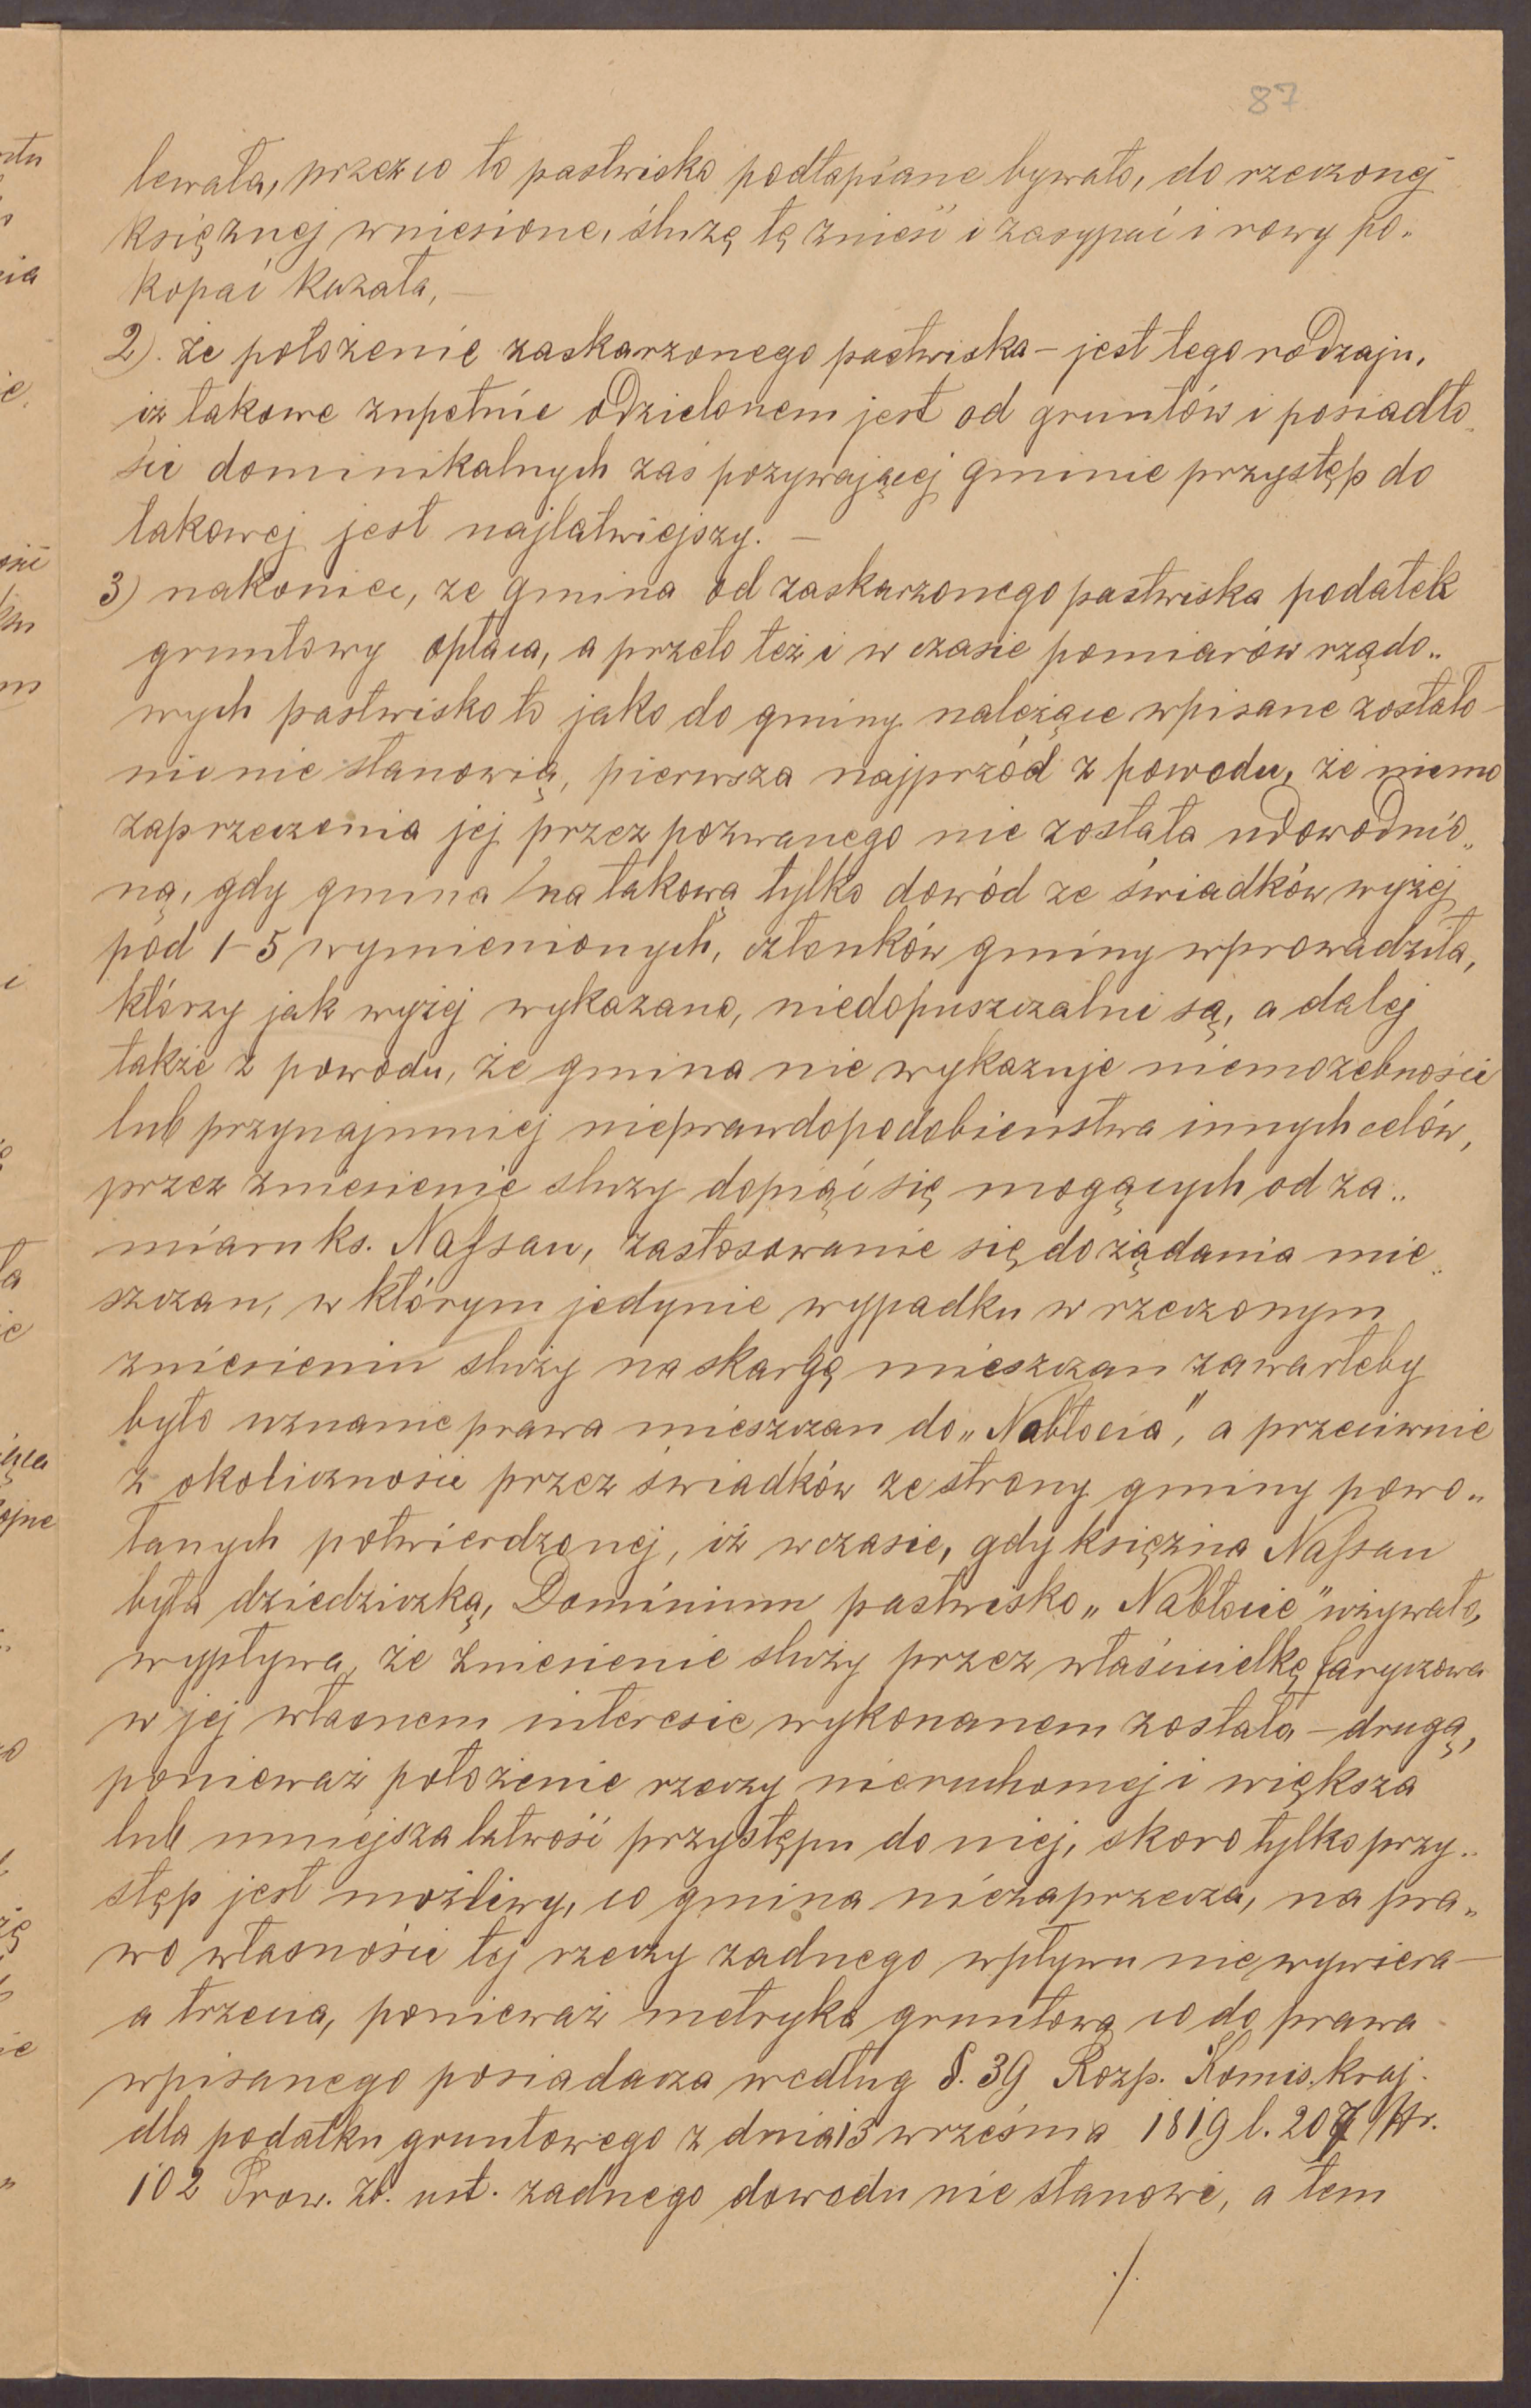 87
lewała, przez co to pastwisko podtapiane bywało, do rzeczonej
księżnej wniesione, śluzę tę znieść i zasypać i rowy po„
kopać kazała, —
2). że położenie zaskarzonego pastwiska – jest tego rodzaju,
iż takowe zupełnie oddzielonem jest od gruntów i posiadło„
ści dominikalnych zaś pozywającej gminie przystęp do
takowej jest najłatwiejszy. —
3) nakoniec, że gmina od zaskarzonego pastwiska podatek
gruntowy opłaca, a przeto też i w czasie pomiarów rządo„
wych pastwisko to jako do gminy należące wpisane zostało –
nic nie stanowią, pierwsza najprzód z powodu, że mimo
zaprzeczenia jej przez pozwanego nie została udowodnio„
ną, gdy gmina na takową tylko dowód ze świadków wyżej
pod 1–5 wymienionych, członków gminy wprowadziła,
którzy jak wyżej wykazano, niedopuszczalni są, a dalej
także z powodu, że gmina nie wykazuje niemożebności
lub przynajmniej nieprawdopodobieństwa innych celów,
przez zniesienie śluzy dopiąć się mogących od za„
miaru ks. Nassau, zastosowanie się do żądania mie„
szczan, w którym jedynie wypadku w rzeczonym
zniesieniu śluzy na skargę mieszczan zawarteby
było uznanie prawa mieszczan do „Nabłocia", a przeciwnie
z okoliczności przez świadków ze strony gminy powo„
łanych potwierdzonej, iż w czasie, gdy księżna Nassau
była dziedziczką, Dominium pastwisko „Nabłocie" używało,
wypływa, że zniesienie śluzy przez właścicielkę Jaryczowa
w jej własnem interesie wykonanem została – drugą,
ponieważ położenie rzeczy nieruchomej i większa
lub mniejsza łatwość przystępu do niej, skoro tylko przy„
stęp jest możliwy, co gmina niezaprzecza, na pra„
wo własności tej rzeczy żadnego wpływu nie wywiera –
a trzecia, ponieważ metryka gruntowa co do prawa
wpisanego posiadacza według §. 39 Rozp. Komis. kraj.
dla podatku gruntowego z dnia 13 września 1819 l. 207 Nr.
102 Prow. zb. ust. żadnego dowodu nie stanowi, a tem
./.